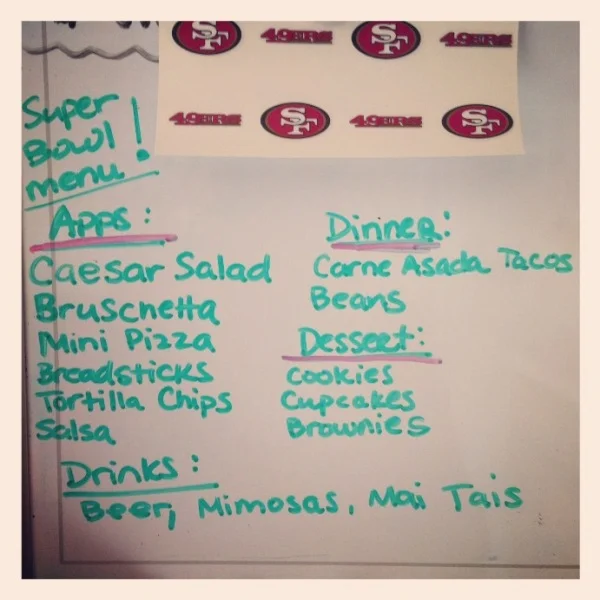 SF 49ERS SF 49ERS
49ERS SF 49ERS SF
Super
Bowl
menu!
Apps:
Caesar Salad
Bruschetta
Mini Pizza
Breadsticks
Tortilla Chips
Salsa
Dinner:
Carne Asada Tacos
Beans
Dessert:
Cookies
Cupcakes
Brownies
Drinks:
Beer, Mimosas, Mai Tais